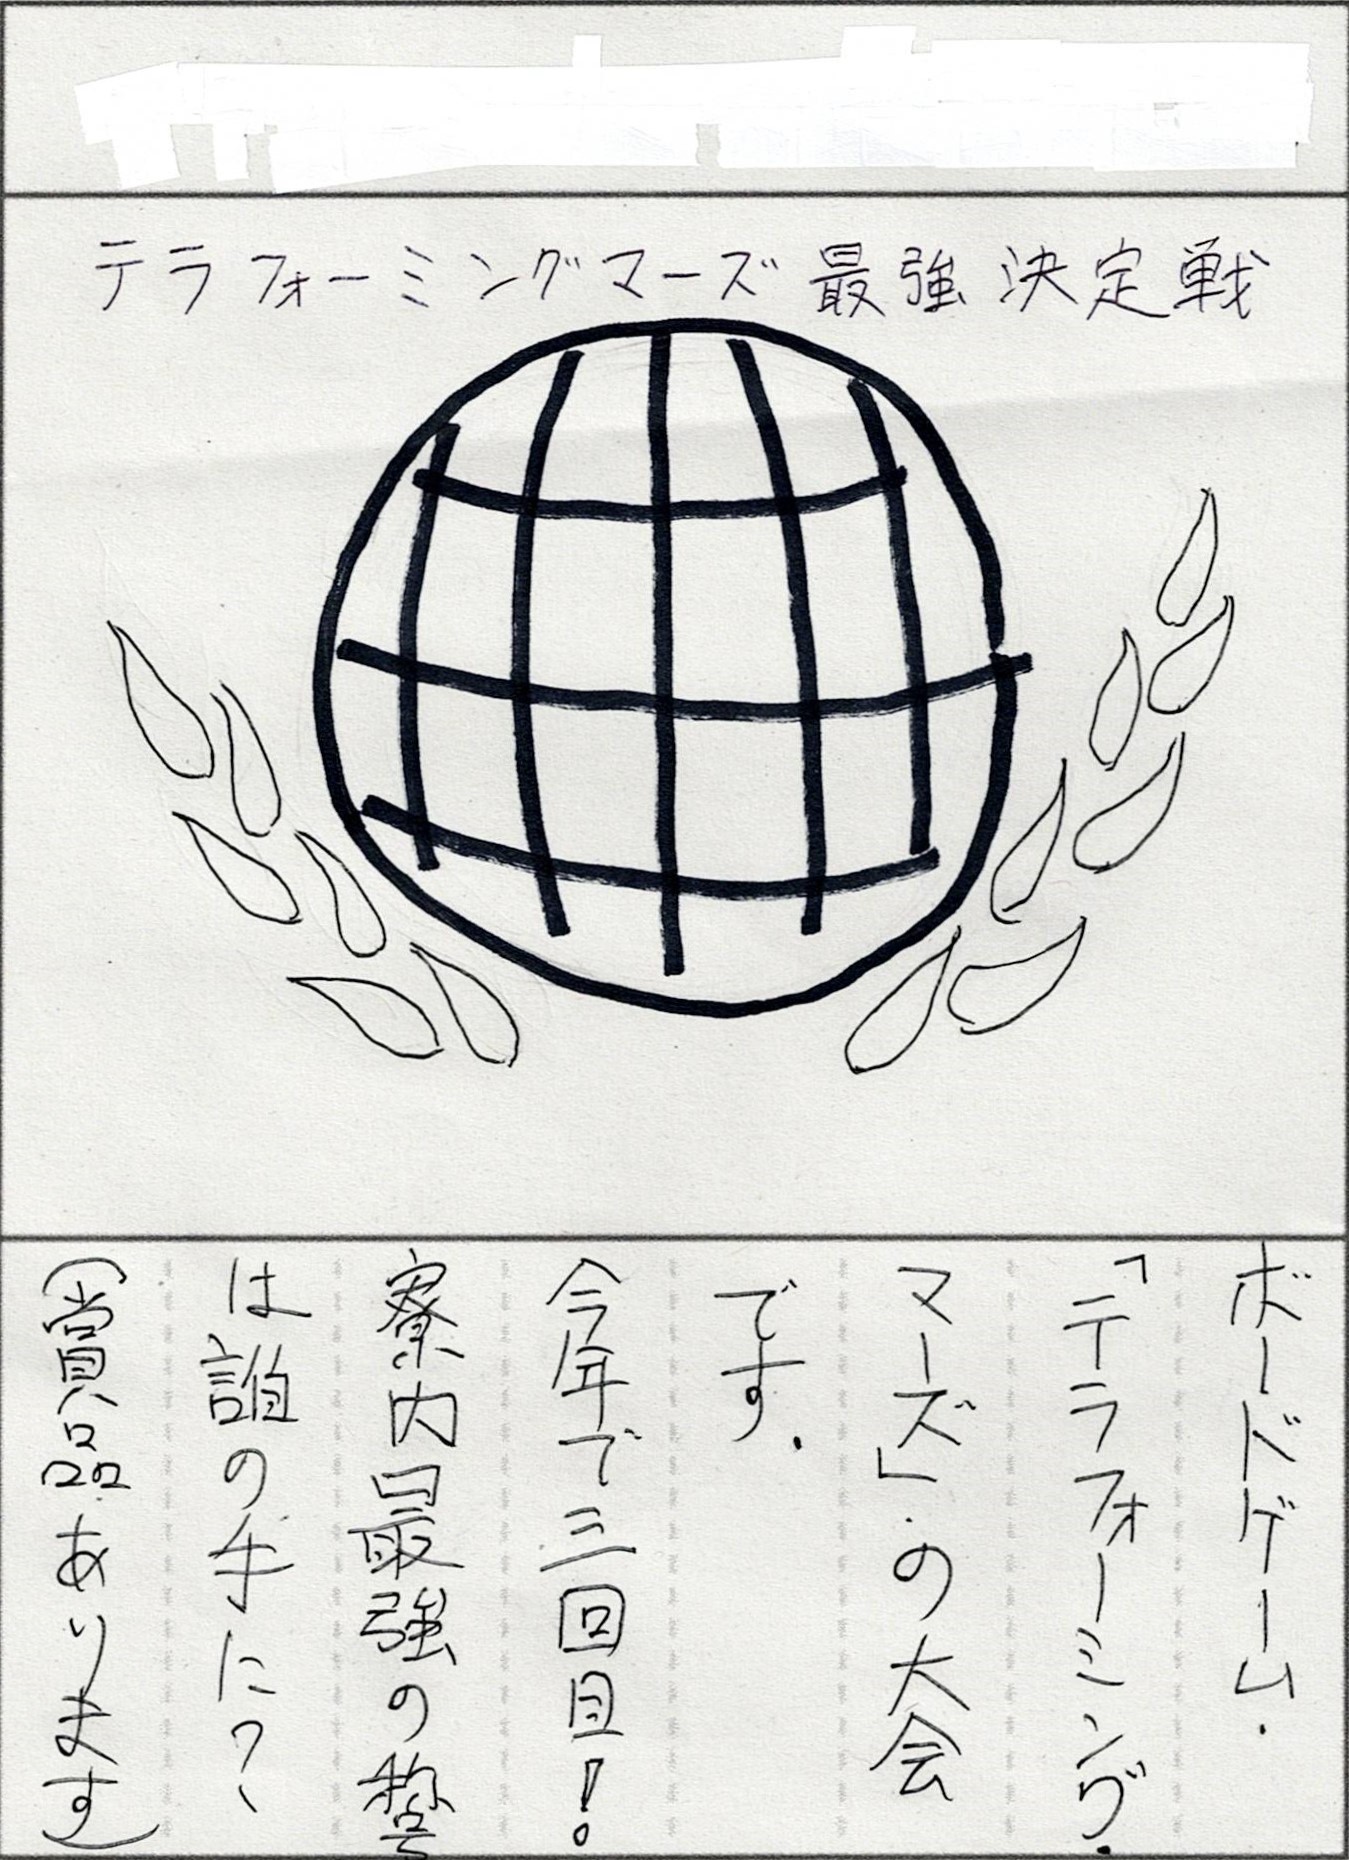 テラフォーミングマーズ最強決定戦
ボードゲーム
「テラフォーミング
マーズ」の大会
です.
今年で三回目!
寮内最強の誉
は誰の手に?
(賞品あります)